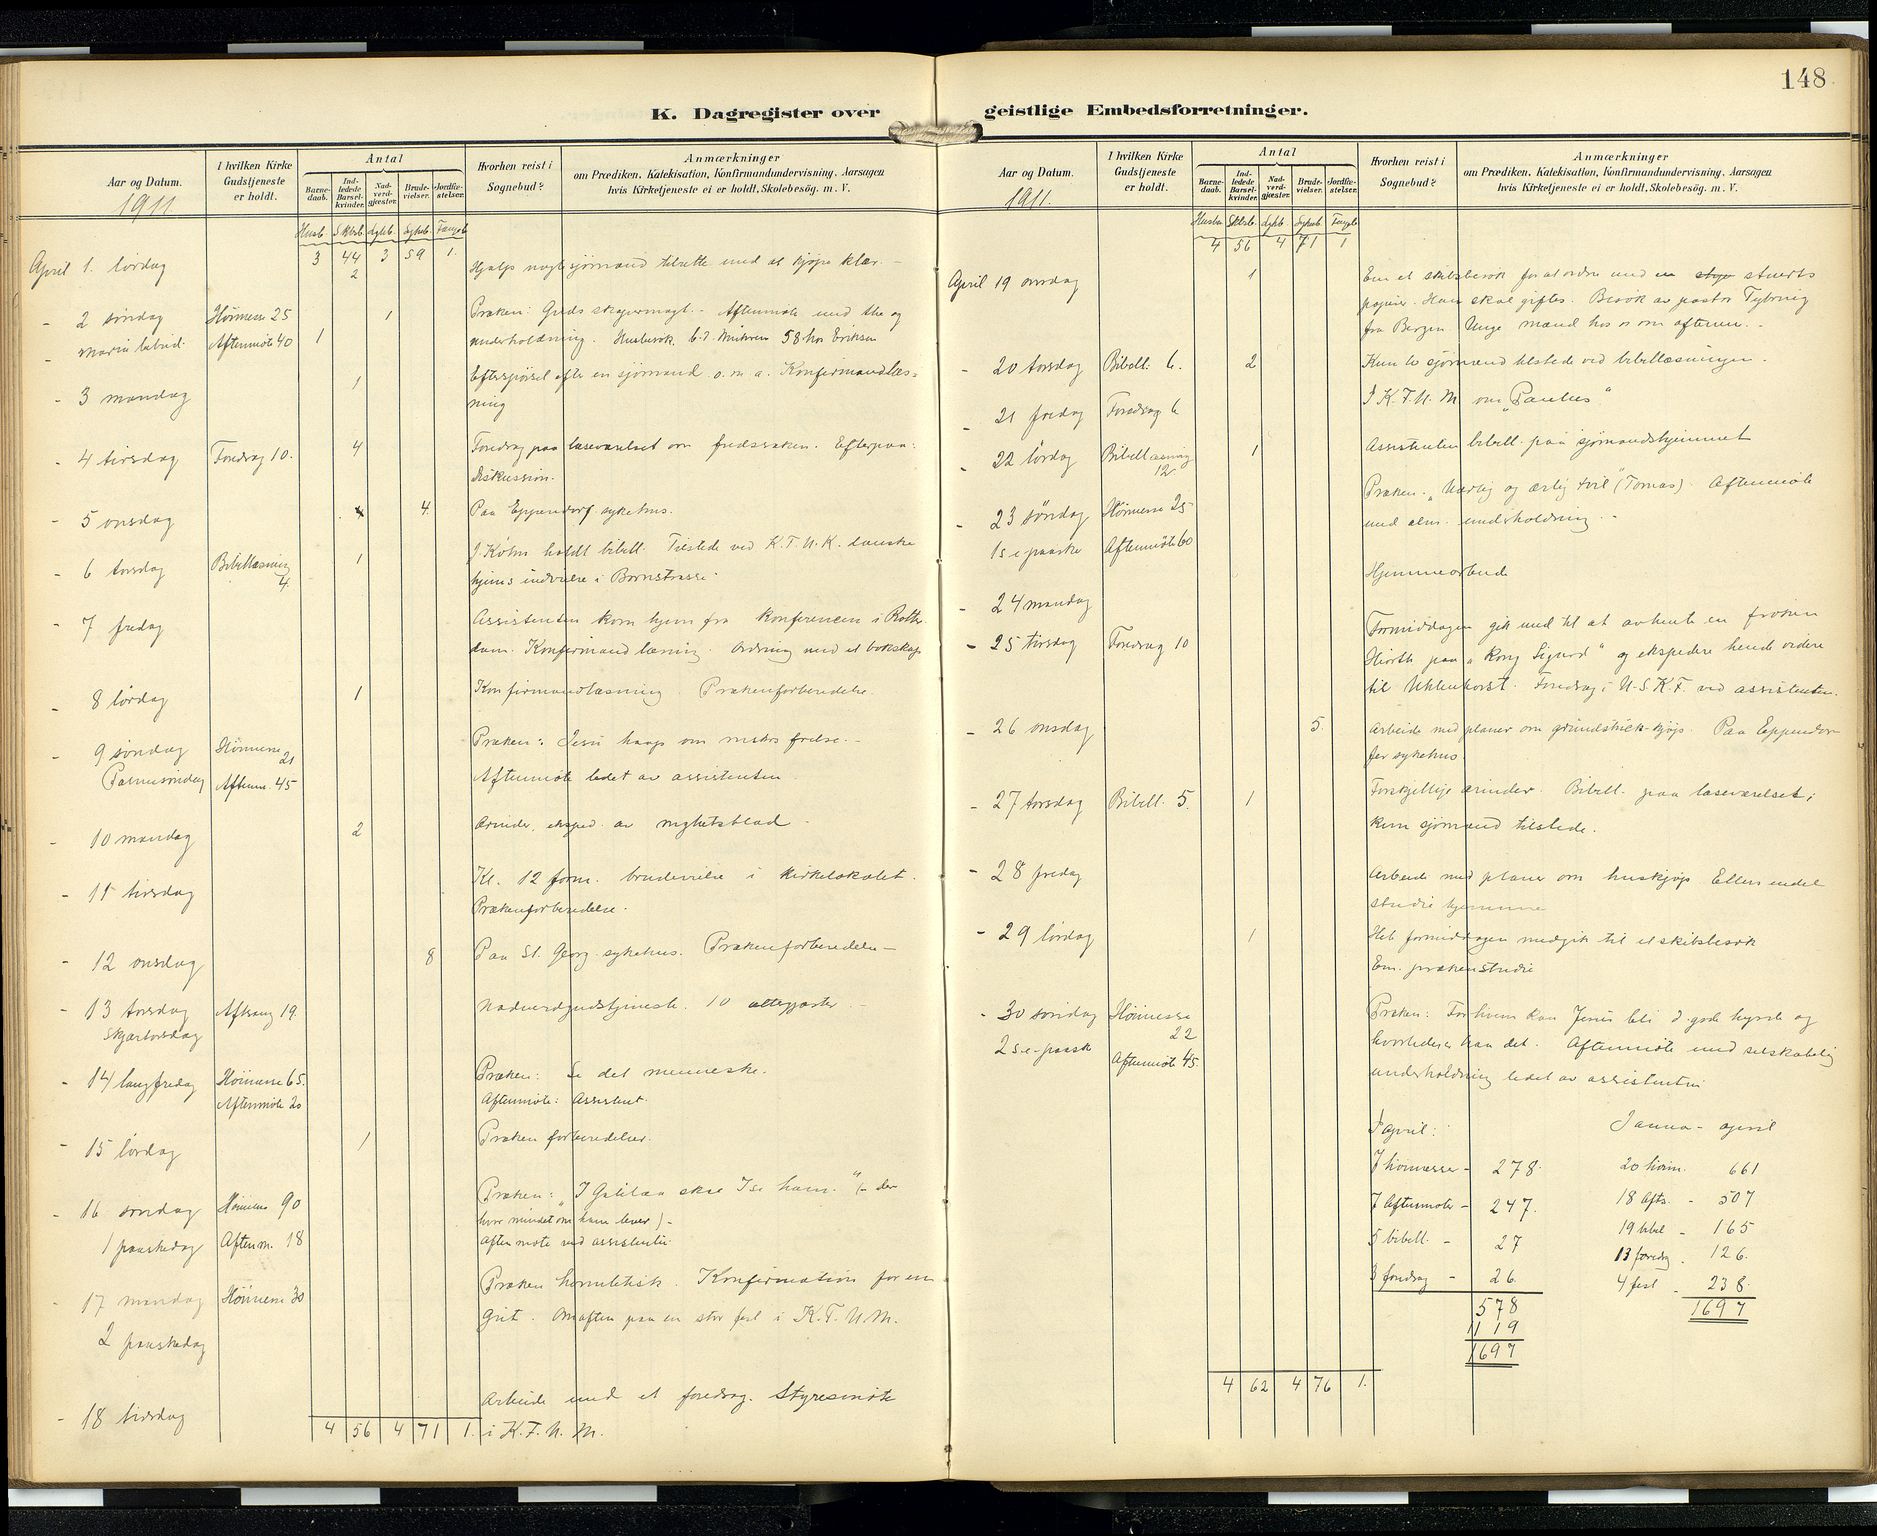 148
K. Dagregister over geistlige Embedsforretninger.
Aar og Datum.
1911
I hvilken Kirke Gudstjeneste er holdt.
Antal
Barne-daab.
Ind-ledede Barsel-kvinder.
Nad-verd-gjæster.
Brude-vielser.
Jordfæ-stelser.
Hvorhen reist i Sognebud?
Anmærkninger
om Prædiken, Katekisation, Konfirmandundervisning, Aarsagen
hvis Kirketjeneste ei er holdt, Skolebesøg. m. V.
Husb. Skbsb. Sykeb. Fængb.
3 44 3 59 1.
April 1. lørdag 2 sjømænd tilrette med at kjøpe klær. -
- 2 søndag Høimesse 25 1 Præken: Guds skapermagt. - Aftenmøte med the og
Maria Aftenmøte 40 1 underholdning. Husbesøk 58 hos Eriksen
- 3 mandag 1 Efterspørsel efter en sjømand o.m.a. Konfirmandlæs-
ning
- 4 tirsdag Foredrag 10. 4 Foredrag paa læseværelset om fredssaken. Efterpaa:
Diskussion.
- 5 onsdag 4. Paa Eppendorf sykehus.
- 6 torsdag Bibellæsning 4. 1 holdt bibell. Tilstede ved K.F.U.K. danske
hjems indvielse i
- 7 fredag Assistenten kom hjem fra konferencen i Rotter
dam. Konfirmandlæsning. Ordning med et bokskap
- 8 lørdag 1 Konfirmandlæsning. Prækenforberedelse.
- 9 søndag Høimesse 21 Præken: Jesu haap om frelse. -
Palmesøndag Aftenm. 45 Aftenmøte ledet av assistenten.
- 10 mandag 2 Ærinder, eksped. av nyhetsblad -
- 11 tirsdag Kl. 12 form. brudevielse i kirkelokalet.
Prækenforberedelse.
- 12 onsdag 8 Paa St. Georg sykehus. Prækenforberedelse -
- 13 torsdag Aftsang 19. Nadverdgudstjeneste. 10 -
Skjærtorsdag
- 14 langfredag Høimesse 65. Præken: Se det menneske.
Aftenmøte 20 Aftenmøte: Assistent.
- 15 lørdag 1 Præken forberedelser.
- 16 søndag Høimesse 90 Præken: "I Galilæa skal I se ham." (- der
hvor mindet om ham lever) -
1 paaskedag Aftenm. 18 Aftenmøte ved assistenten.
- 17 mandag Høimesse 30 Præken homiletisk. Konfirmation for en
2 paaskedag Om aften paa en stor fest i K.F.U.M.
- 18 tirsdag Arbeide med et foredrag. Styresmøte
4 56 4 71 1. i K.F.U.M.
Aar og Datum.
1911.
I hvilken Kirke Gudstjeneste er holdt.
Antal
Barne-daab.
Ind-ledede Barsel-kvinder.
Nad-verd-gjæster.
Brude-vielser.
Jordfæ-stelser.
Hvorhen reist i Sognebud?
Anmærkninger
om Prædiken, Katekisation, Konfirmandundervisning, Aarsagen
hvis Kirketjeneste ei er holdt, Skolebesøg. m. V.
Husb. Skbsb. Sykeb. Fængb
4 56 4 71 1
April 19 onsdag 1 Em et skibsbesøk for at ordne med en stuerts
papirer. Han skal giftes. Besøk av pastor Tybring
fra Bergen Unge mænd hos os om aftenen. -
- 20 torsdag Bibell. 6. 2 Kun to sjømænd tilstede ved bibellæsningen.
- 21 fredag Foredrag 6 I K.F.U.M om "Paulus"
- 22 lørdag Bibellæsning 12. 1 Assistenten bibell. paa sjømandshjemmet
- 23 søndag Høimesse 25 Præken. "Uærlig og ærlig tvil (Tomas). Aftenmøte
1 s e paaske Aftenmøte 60 med alm. underholdning. -
- 24 mandag Hjemmearbeide
- 25 tirsdag Foredrag 10 Formiddagen gik med til at avhente en frøken
Hiorth paa "Kong Sigurd" og ekspedere hende videre
til Uhlenhorst. Foredrag i U.S.K.F. ved assistenten.
- 26 onsdag 5. Arbeide med planer om grundstück-kjøp. Paa Eppendor
fer sykehus.
- 27 torsdag Bibell. 5. 1 Forskjellige ærinder. Bibell. paa læseværelset;
kun sjømænd tilstede.
- 28 fredag Arbeide med planer om huskjøp Ellers endel
studie hjemme
- 29 lørdag 1 Hele formiddagen medgik til et skibsbesøk
Em. prækenstudie
- 30 søndag Høimesse 22 Præken: For hvem kan Jesus bli d. gode hyrde og
2 s. e. paaske hvorledes er han det. Aftenmøte med selskabelig
Aftenmøte 45. underholdning ledet av assistenten
I april: Janua - april
7 høimesser - 278. 20 høim. 661
7 Aftenmøte - 247. 18 Afts. - 507
5 bibell. - 27 19 bibel - 165
3 foredrag - 26. 13 foredrg. 126.
578 4 fest - 238.
1119 1697
1697
4 62 4 76 1.